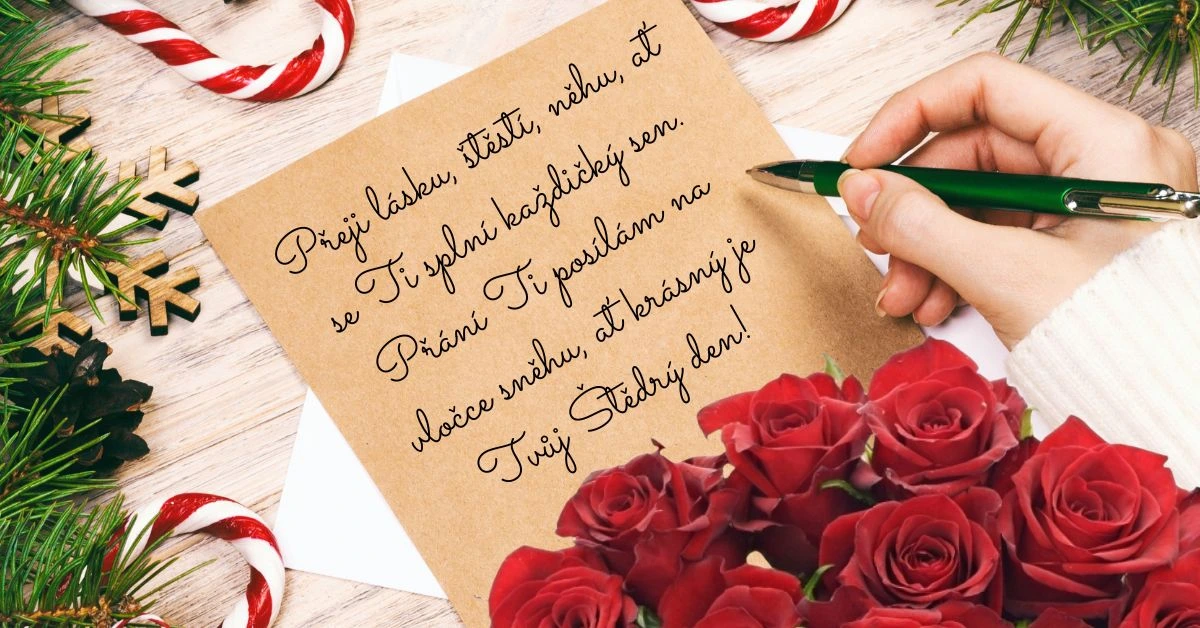 Přeji lásku, štěstí, něhu, ať
se Ti splní každičký sen.
Přání Ti posílám na
vločce sněhu, ať krásný je
Tvůj Štědrý den!